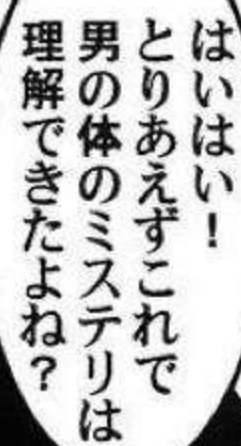 はいはい！
とりあえずこれで
男の体のミステリは
理解できたよね？